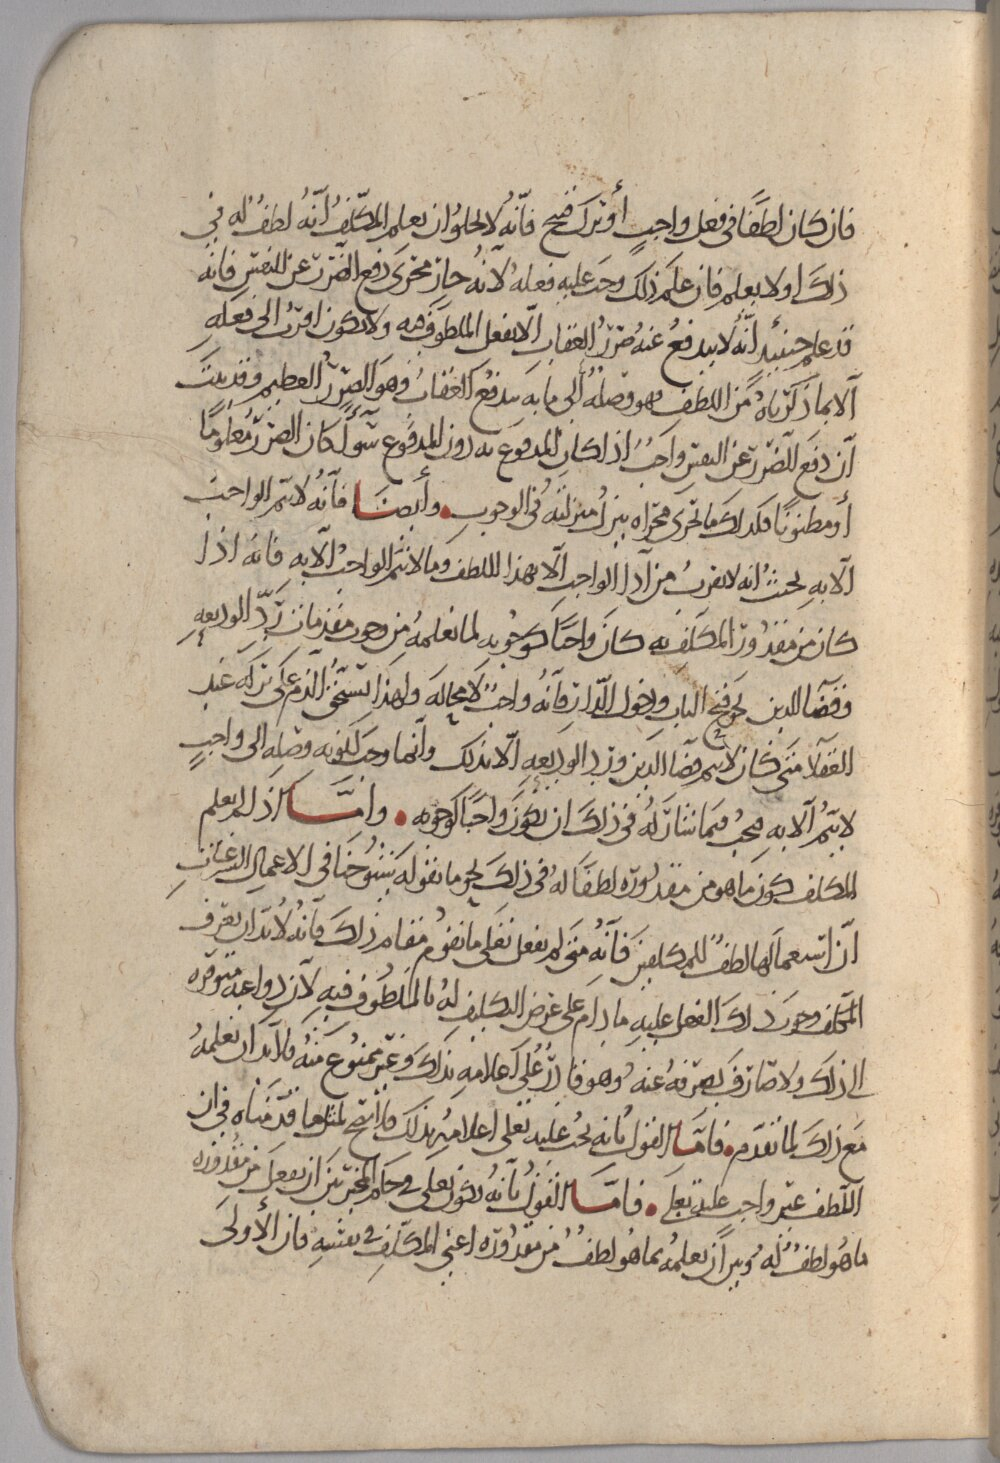 فان كان لطفًا فى فعل واجبٍ أو ترك قبيح فانّهُ لا يخلوُ ان يعلم المكلّفُ أنّهُ لطفُ له فى
ذلكَ او لا يعلم فان علمَ ذلك وجبَ عليهِ فعلهُ لانّهُ جازٍ مجرَى دفع الضّرر عن النفس فانّه
قد علم حينئذٍ انّهُ لا يندفعُ عنهُ ضررُ العقاب الّا بفعل الملطوف فيه ولا يكون اقربُ الى فعلهِ
الّا بما ذكرناهُ من اللطف فهو وصلهُ الى ما به يندفعُ العقابُ وهوَ الضررُ العظيم وقد بينتَ
انّ دفعَ الضّرر عن النفس واجبُ اذا كان المدفوع به دون المدفوع سوآءً كان الضررُ معلومًا
أو مظنونًا فكذلك ما يجرى مجراه ينزلُ منزلتهُ فى الوجوب وأيضًا فانّهُ لا يتم الواجبُ
الّا بهِ بحيثُ انه لا يقربُ من آدآ الواجب الّا بهذا اللطف وما لا يتم الواجبُ الّا به فانه اذا
كان من مقدُور المكلف به كانَ واجبًا كوجُوبه لما نعلمهُ من وجوب مقدمات ردّ الوديعهِ
وقضآ الدين نحو فتح الباب ودخول الدّار فانّهُ واجبُ لا محالهَ ولهذا يستحقُّ الذم على تركه عند
العقلآ متى كان لا يتم قضآ الدين ورد الوديعهِ الّا بذلك وانّما وجبَ لكونه وصله الى واجبٍ
لا يتمُّ الّا به فيجبُ فيما شاركهُ فى ذلكَ ان يكونَ واجبًا كوجوبه وامّا اذا لم يعلم
المكلف كون ما هو من مقدُوره لطفًا لهُ فى ذلكَ نحو ما نقولهُ شيُوخنا فى الاعمال الشرعيّاتِ
انّ استعمالها لطفُ للمكلفينَ فانّهُ متى لم يفعل تعلى ما يقومُ مقام ذلكَ فانّهُ لا بدّ ان يعرّف
المكلف وجوبَ ذلكَ الفعل عليهِ ما دام على غرض التكليف لهُ بالملطُوف فيهِ لانّ دواعيه متوفره
الى ذلكَ ولا صارفَ يصرفهُ عنهُ وهو قادرُ على اعلامه بذلكَ وغير ممنُوع منهُ فلا بد ان نعلمهُ
معَ ذلكَ لما تقدم فامّا القول بانه يجبُ عليه تعلى اعلامهُ بذلكَ فلا يصح لمثل ما قدّمناه فى ان
اللّطف غير واجب عليه تعلى فامّا القولُ بانّهُ يكون تعلى فى حكم المخيّر بين ان يفعل من مقدُوره
ما هُو لطفُ لهُ وبين أن يعلمهُ بما هُو لطفُ من مقدُوره اعنى المكلّف فى نفسهِ فان الأولى